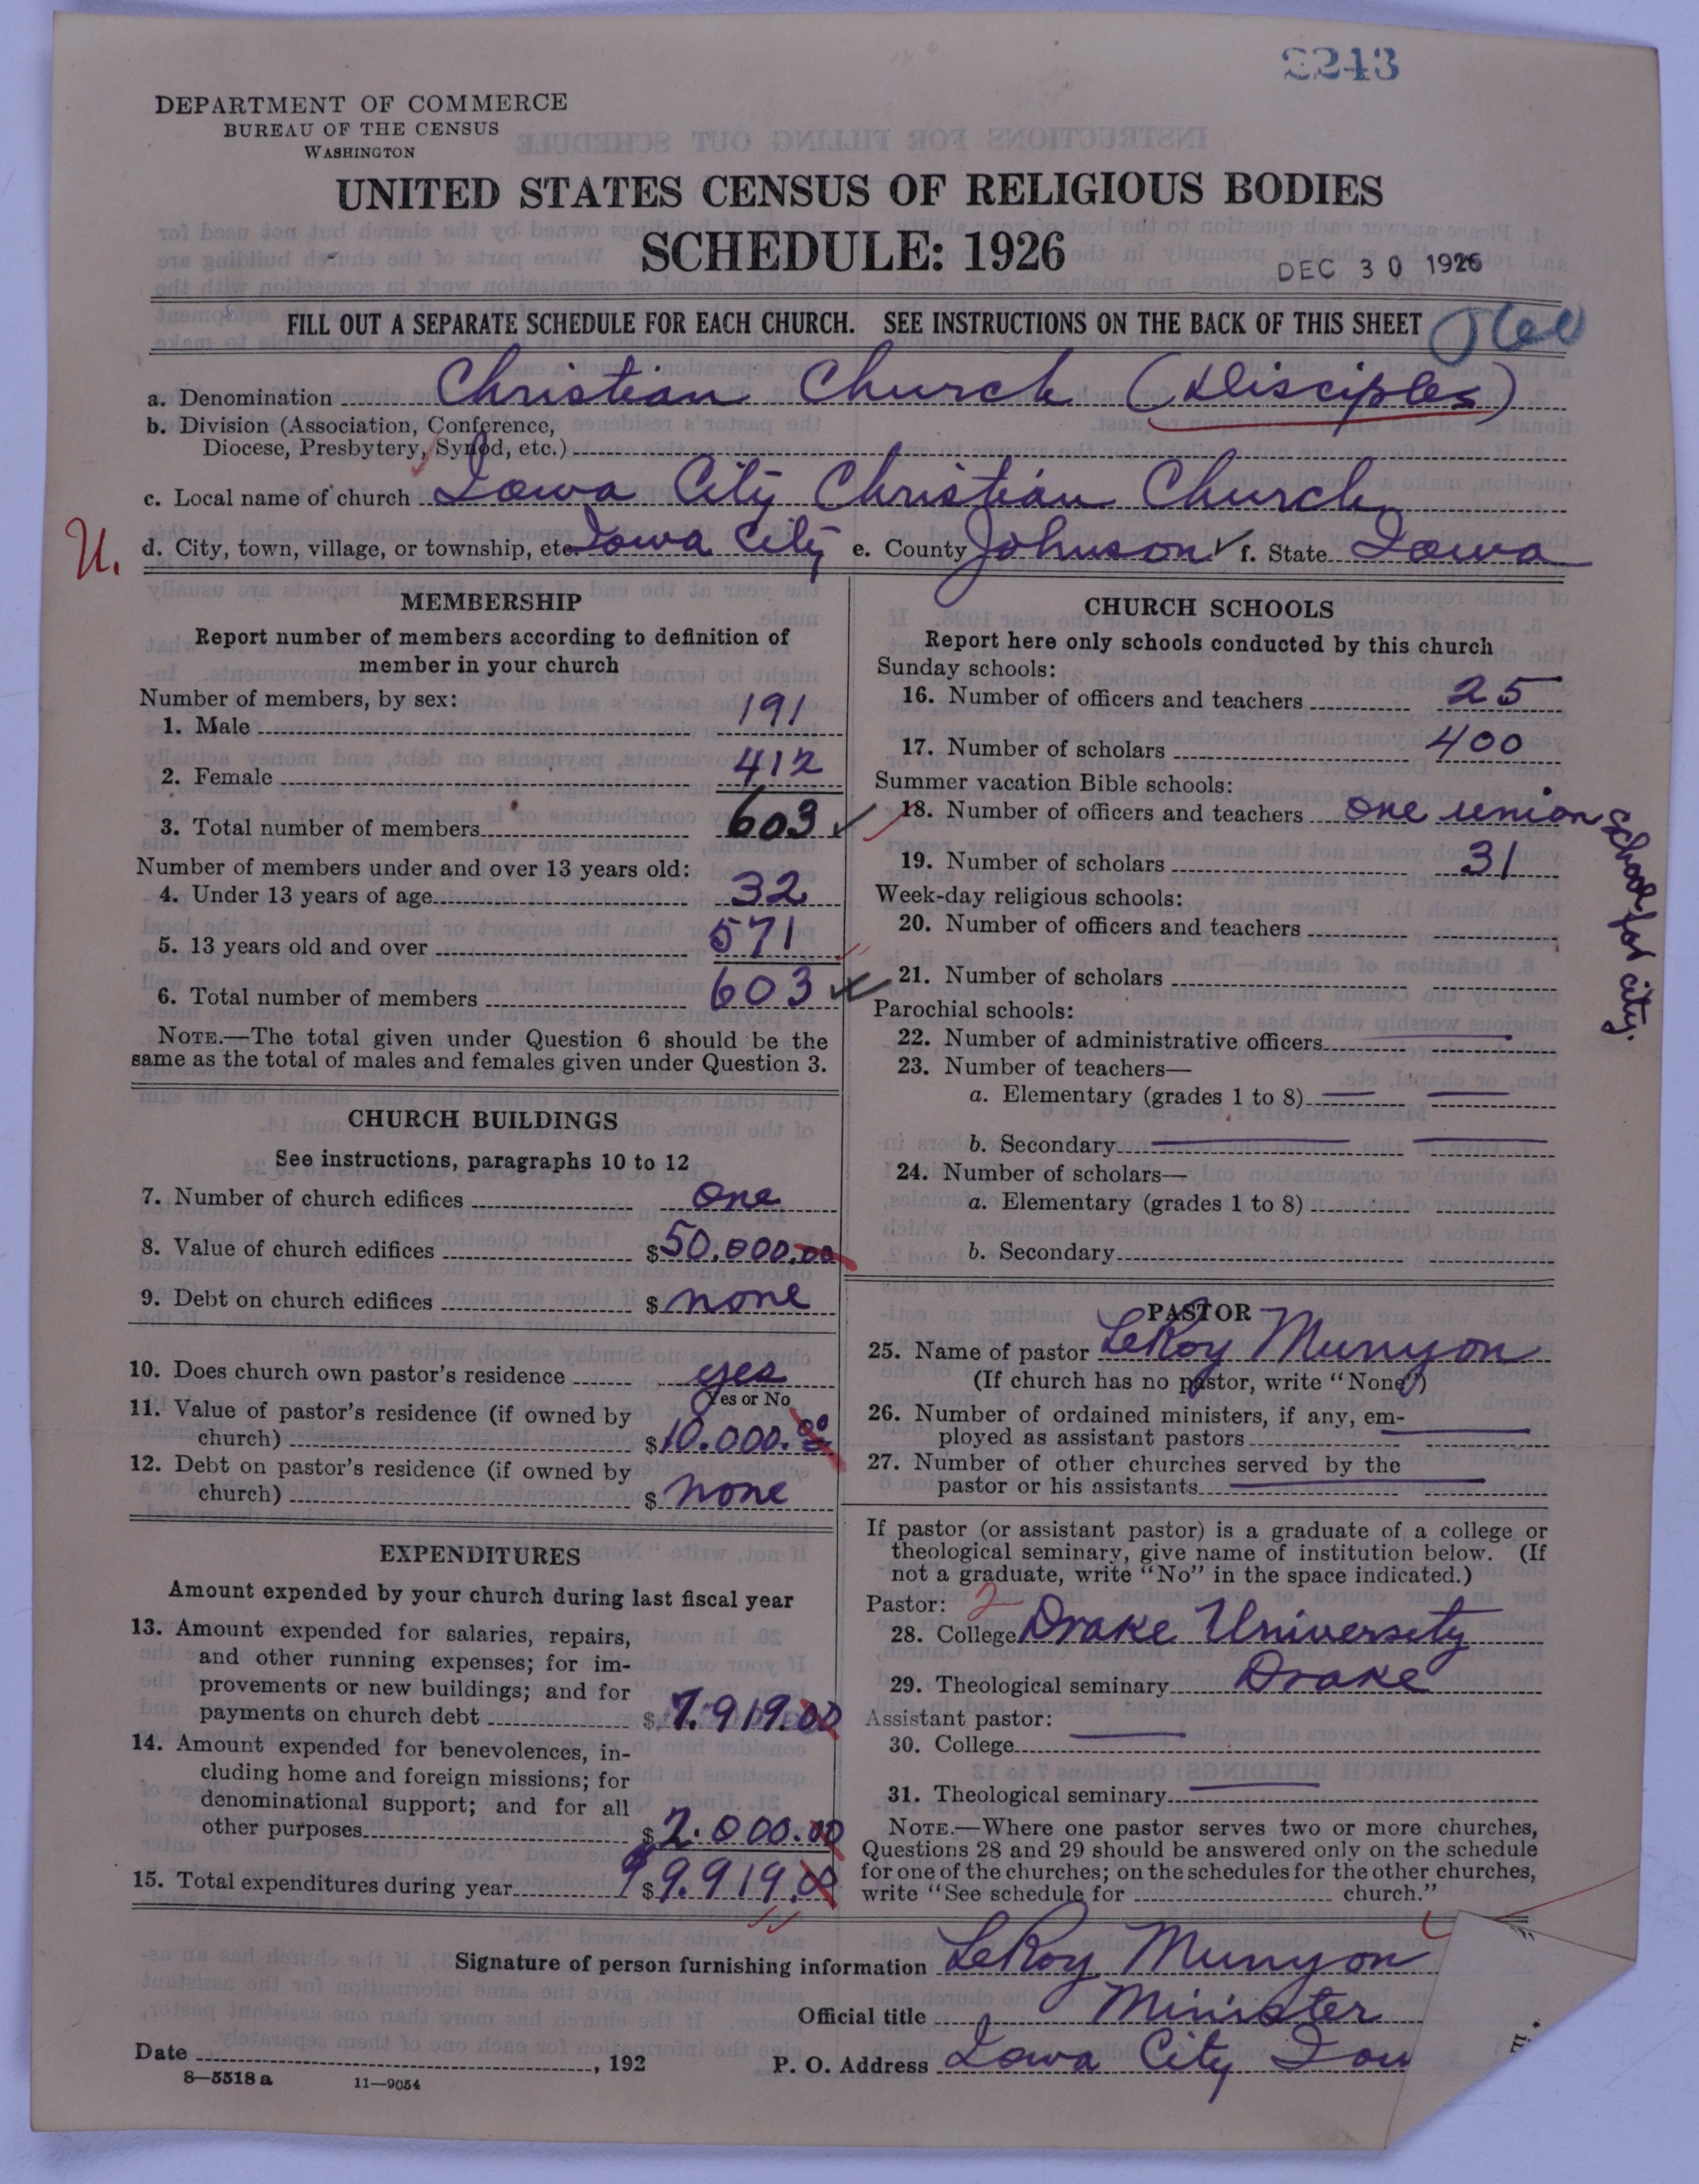 2243
DEPARTMENT OF COMMERCE
BUREAU OF THE CENSUS
WASHINGTON
UNITED STATES CENSUS OF RELIGIOUS BODIES
SCHEDULE: 1926
DEC 30 1926
FILL OUT A SEPARATE SCHEDULE FOR EACH CHURCH. SEE INSTRUCTIONS ON THE BACK OF THIS SHEET
a. Denomination Christian Church (Disciples)
b. Division (Association, Conference,
Diocese, Presbytery, Synod, etc.)
c. Local name of church Iowa City Christian Church
U.
d. City, town, village, or township, etc. Iowa City e. County Johnson f. State Iowa
MEMBERSHIP
Report number of members according to definition of
member in your church
Number of members, by sex:
1. Male 191
2. Female 412
3. Total number of members 603
Number of members under and over 13 years old:
4. Under 13 years of age 32
5. 13 years old and over 571
6. Total number of members 603
NOTE.—The total given under Question 6 should be the
same as the total of males and females given under Question 3.
CHURCH BUILDINGS
See instructions, paragraphs 10 to 12
7. Number of church edifices one
8. Value of church edifices $50.000.00
9. Debt on church edifices $ none
10. Does church own pastor's residence yes
Yes or No
11. Value of pastor's residence (if owned by
church) $10.000.00
12. Debt on pastor's residence (if owned by
church) $ none
EXPENDITURES
Amount expended by your church during last fiscal year
13. Amount expended for salaries, repairs,
and other running expenses; for im-
provements or new buildings; and for
payments on church debt $ 7.919.00
14. Amount expended for benevolences, in-
cluding home and foreign missions; for
denominational support; and for all
other purposes $ 2.000.00
15. Total expenditures during year $ 9.919.0
CHURCH SCHOOLS
Report here only schools conducted by this church
Sunday schools:
16. Number of officers and teachers 25
17. Number of scholars 400
Summer vacation Bible schools:
18. Number of officers and teachers one union
school for city.
19. Number of scholars 31
Week-day religious schools:
20. Number of officers and teachers
21. Number of scholars
Parochial schools:
22. Number of administrative officers
23. Number of teachers—
a. Elementary (grades 1 to 8)
b. Secondary
24. Number of scholars—
a. Elementary (grades 1 to 8)
b. Secondary
PASTOR
25. Name of pastor LeRoy Munyon
(If church has no pastor, write "None")
26. Number of ordained ministers, if any, em-
ployed as assistant pastors
27. Number of other churches served by the
pastor or his assistants
If pastor (or assistant pastor) is a graduate of a college or
theological seminary, give name of institution below. (If
not a graduate, write "No" in the space indicated.)
Pastor: 2
28. College Drake University
29. Theological seminary Drake
Assistant pastor:
30. College
31. Theological seminary
NOTE.—Where one pastor serves two or more churches,
Questions 28 and 29 should be answered only on the schedule
for one of the churches; on the schedules for the other churches,
write "See schedule for church."
Signature of person furnishing information LeRoy Munyon
Official title Minister
Date , 192
P. O. Address Iowa City Iow
8—5518a 11—9054